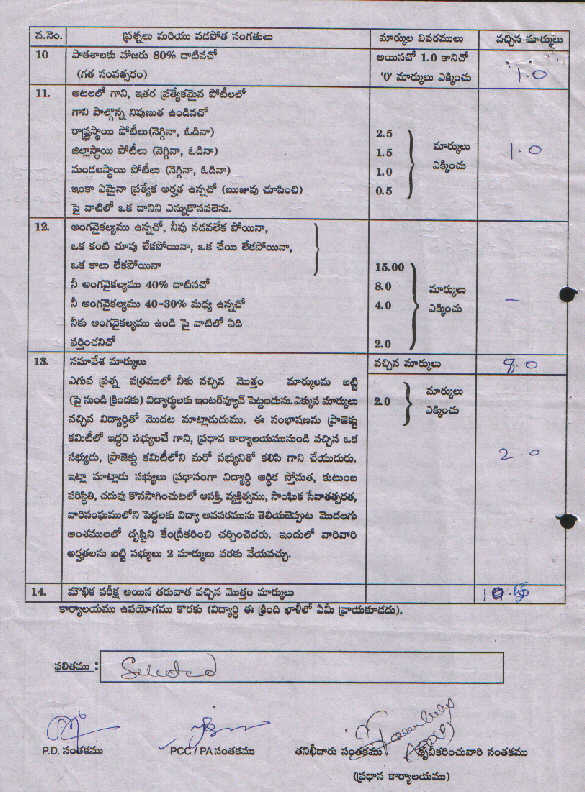 వ.నెం. ప్రశ్నలు మరియు వడపోత సంగతులు మార్కుల వివరములు వచ్చిన మార్కులు
10 పాఠశాలకు హాజరు 80% దాటినచో అయినచో 1.0 కానిచో 1.0
(గత సంవత్సరం) '0' మార్కులు ఎక్కించు
11. ఆటలలో గాని, ఇతర ప్రత్యేకమైన పోటీలలో
గాని పాల్గొన్న నిపుణుత ఉండినచో
రాష్ట్రస్థాయి పోటీలు(నెగ్గినా, ఓడినా) 2.5
జిల్లాస్థాయి పోటీలు (నెగ్గినా, ఓడినా) 1.5 మార్కులు 1.0
మండలస్థాయి పోటీలు (నెగ్గినా, ఓడినా) 1.0 ఎక్కించు
ఇంకా ఏమైనా ప్రత్యేక అర్హత ఉన్నచో (ఋజువు చూపించి) 0.5
పై వాటిలో ఒక దానిని ఎన్నుకొనవలెను.
12. అంగవైకల్యము ఉన్నచో, నీవు నడవలేక పోయినా,
ఒక కంటి చూపు లేకపోయినా, ఒక చేయి లేకపోయినా,
ఒక కాలు లేకపోయినా 15.00
నీ అంగవైకల్యము 40% దాటినచో 8.0 మార్కులు
నీ అంగవైకల్యము 40-30% మధ్య ఉన్నచో 4.0 ఎక్కించు -
నీకు అంగవైకల్యము ఉండి పై వాటిలో ఏది
వర్తించనిచో 2.0
13. సమావేశ మార్కులు వచ్చిన మార్కులు 8.0
ఎగువ ప్రశ్న పత్రములో నీకు వచ్చిన మొత్తం మార్కులను బట్టి మార్కులు
(పై నుండి క్రిందకు) విద్యార్థులకు ఇంటర్వ్యూవ్ పెట్టబడును. ఎక్కువ మార్కులు 2.0 ఎక్కించు
వచ్చిన విద్యార్థితో మొదట మాట్లాడుదుము. ఈ సంభాషణను ప్రాజెక్టు
కమిటీలో ఇద్దరి సభ్యులచే గాని, ప్రధాన కార్యాలయమునుండి వచ్చిన ఒక
సభ్యుడు, ప్రాజెక్టు కమిటీలోని మరో సభ్యునితో కలిపి గాని చేయుదురు. 2.0
ఇట్లా మాట్లాడు సభ్యులు ప్రధానంగా విద్యార్థి ఆర్థిక స్తోమత, కుటుంబ
పరిస్థితి, చదువు కొనసాగించుటలో ఆసక్తి, వ్యక్తిత్వము, సాంఘిక సేవాతత్పరత,
వారిసంఘములోని పెద్దలకు విద్యా అవసరమును తెలియజెప్పుట మొదలగు
అంశములలో దృష్టిని కేంద్రీకరించి చర్చించెదరు. ఇందులో వారివారి
అర్హతలను బట్టి సభ్యులు 2 మార్కులు వరకు వేయవచ్చు.
14. మౌఖిక పరీక్ష అయిన తరువాత వచ్చిన మొత్తం మార్కులు
కార్యాలయము ఉపయోగము కొరకు (విద్యార్థి ఈ క్రింది ఖాళీలో ఏమీ వ్రాయకూడదు).
ఫలితము : Selected
P.D. సంతకము PCC / PA సంతకము తనిఖీదారు సంతకము ధృవీకరించువారి సంతకము
(ప్రధాన కార్యాలయము)